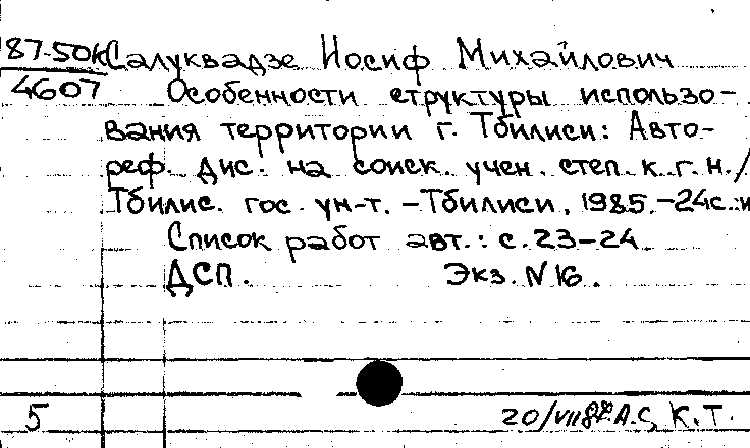 87-50К Салуквадзе Иосиф Михайлович
4607 Особенности структуры использо-
вания территории г. Тбилиси: Авто-
реф. дис. на соиск. учен. степ. к.г.н./
Тбилис. гос. ун-т. – Тбилиси, 1985. – 24с.:и
Список работ авт.: с. 23-24
ДСП. Экз. N 16.
5 20/VII 87 А.С, К.Т.